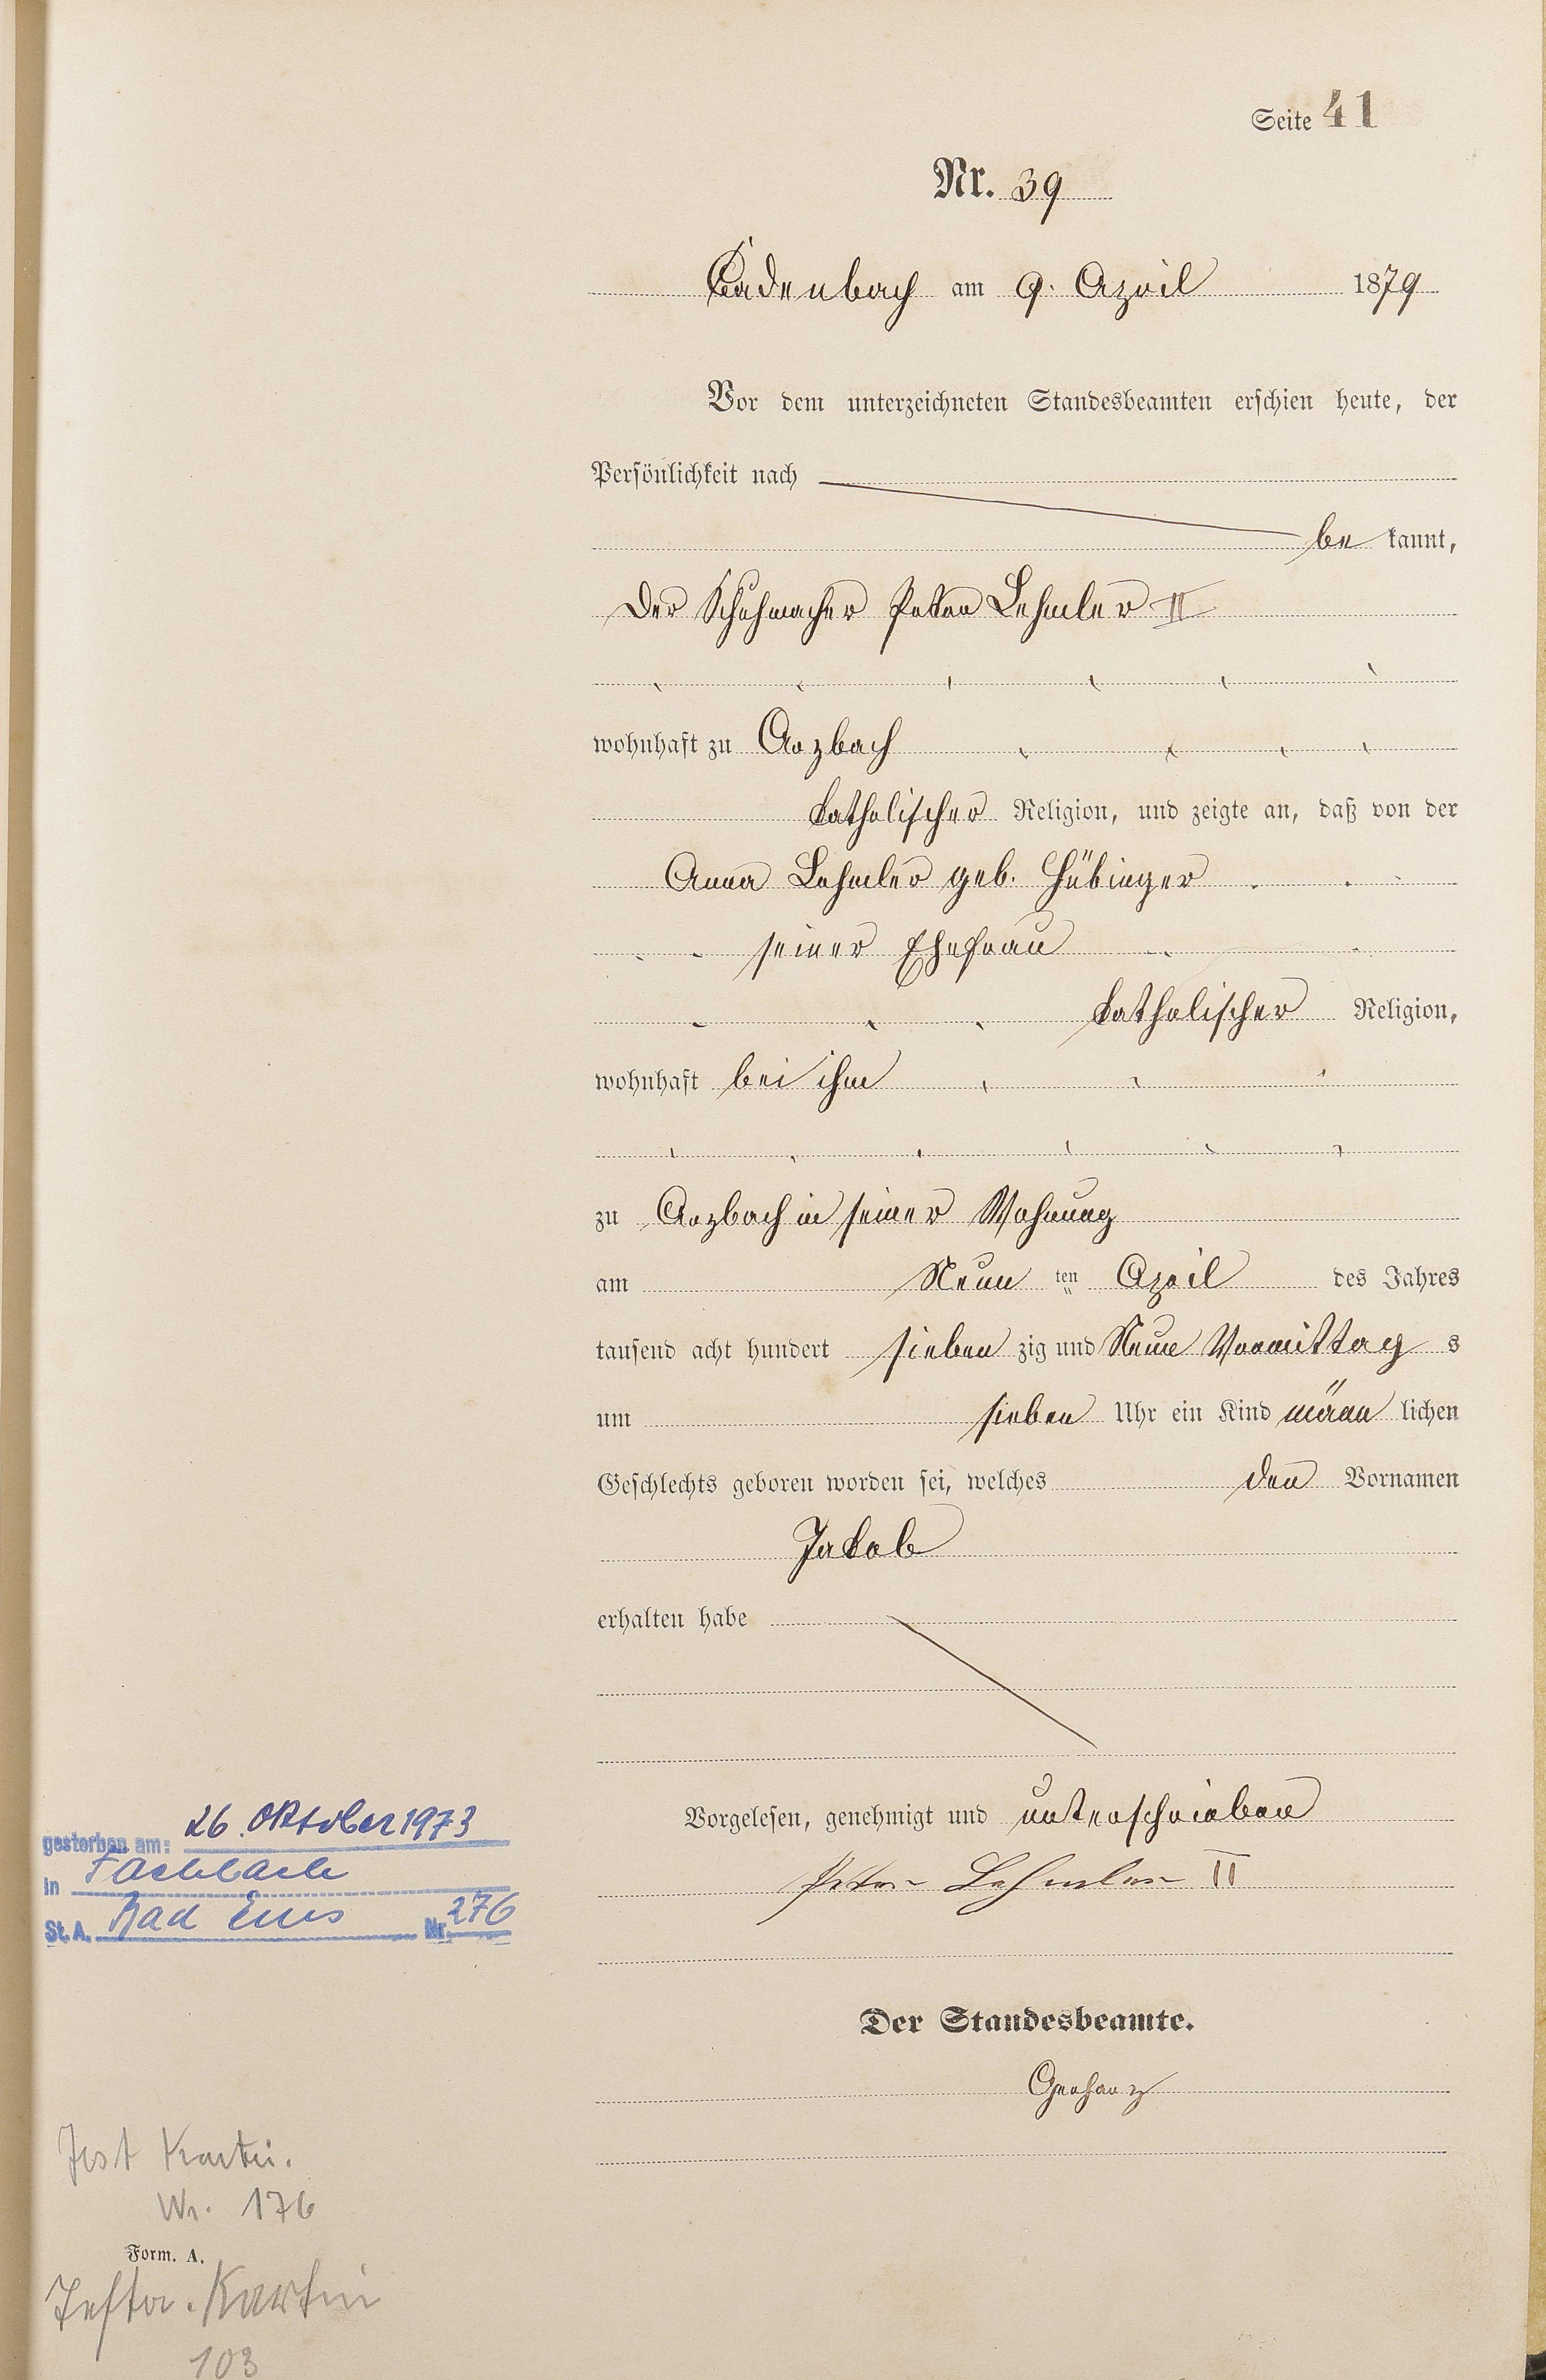 Seite 41
Nr. 39
Cadenbach am 9. April 1879
Vor dem unterzeichneten Standesbeamten erschien heute, der
Persönlichkeit nach
be kannt,
der Schuhmacher Peter Lehmler II
wohnhaft zu Arzbach
katholischer Religion, und zeigte an, daß von der
Anna Lehmler geb. Hübinger
seiner Ehefrau
katholischer Religion,
wohnhaft bei ihm
zu Arzbach in seiner Wohnung
am Neun ten April des Jahres
tausend acht hundert sieben zig und Neun Vormittag s
um sieben Uhr ein Kind männ lichen
Geschlechts geboren worden sei, welches den Vornamen
Jakob
erhalten habe
Vorgelesen, genehmigt und unterschrieben
Peter Lehmler II
Der Standesbeamte.
Gerharz
gestorben am: 26. Oktober 1973
in Fachbach
St. A. Bad Ems Nr. 276
Test Kartei.
Nr. 176
Form. A.
Testa. Kartei
103